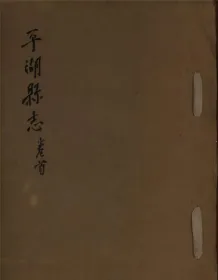 平湖縣志
卷首